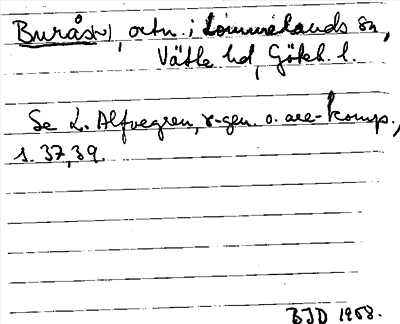 Buråsen, ortn. i Lommelands sn,
Vätle hd, Göteb. l.
Se L. Alfvegren, r-gen. o. are-komp.,
s. 37, 39.
BJD 1958.